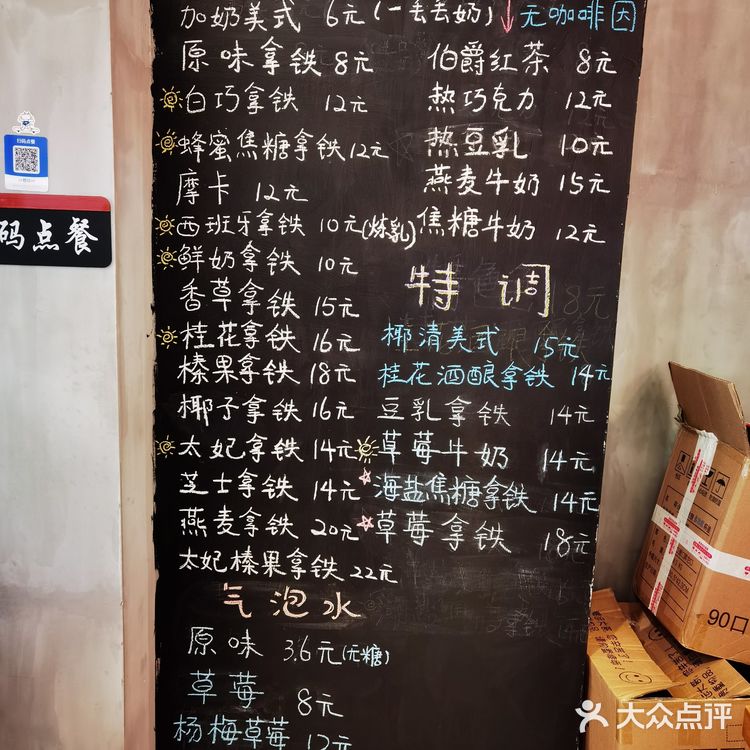 加奶美式 6元(一丢丢奶)
原味拿铁 8元
白巧拿铁 12元
蜂蜜焦糖拿铁 12元
摩卡 12元
西班牙拿铁 10元(炼乳)
鲜奶拿铁 10元
香草拿铁 15元
桂花拿铁 16元
榛果拿铁 18元
椰子拿铁 16元
太妃拿铁 14元
芝士拿铁 14元
燕麦拿铁 20元
太妃榛果拿铁 22元
气泡水
原味 3.6元(无糖)
草莓 8元
杨梅草莓 12元
↓无咖啡因
伯爵红茶 8元
热巧克力 12元
热豆乳 10元
燕麦牛奶 15元
焦糖牛奶 12元
特调
椰清美式 15元
桂花酒酿拿铁 14元
豆乳拿铁 14元
草莓牛奶 14元
海盐焦糖拿铁 14元
草莓拿铁 18元
扫码点餐
码点餐
90口
大众点评